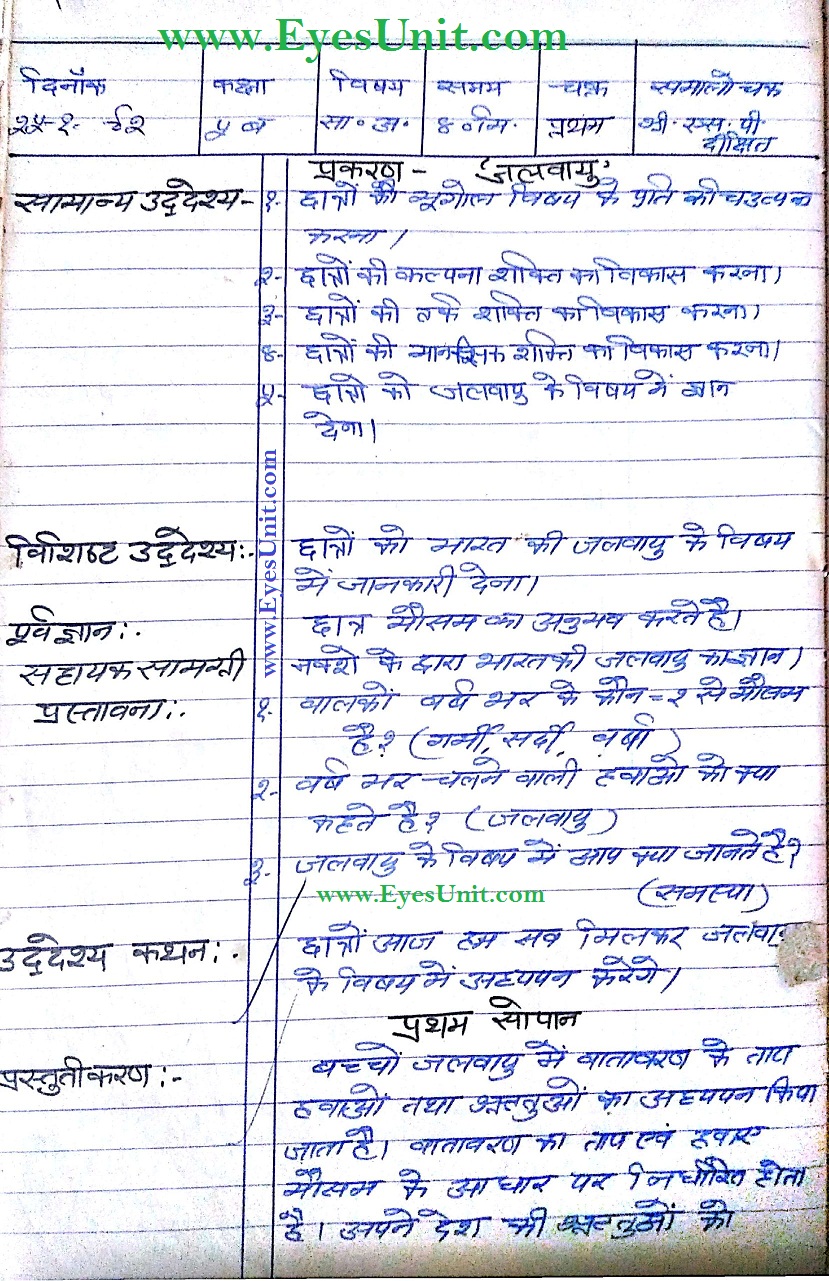 www.EyesUnit.com
दिनाँक कक्षा विषय समय चक्र समालोचक
२५-१-९२ ५ ब सा॰अ॰ ४० मि॰ प्रथम श्री एस॰पी॰
दीक्षित
प्रकरण - 'जलवायु'
सामान्य उद्देश्य- १- छात्रों की भूगोल विषय के प्रति रूची उत्पन्न
करना।
२- छात्रों की कल्पना शक्ति का विकास करना।
३- छात्रों की तर्क शक्ति का विकास करना।
४- छात्रों की मानसिक शक्ति का विकास करना।
५- छात्रों को जलवायु के विषय में ज्ञान
देना।
www.EyesUnit.com
विशिष्ट उद्देश्य:- छात्रों को भारत की जलवायु के विषय
में जानकारी देना।
पूर्व ज्ञान:- छात्र मौसम का अनुभव करते है।
सहायक सामग्री नक्शे के द्वारा भारत की जलवायु का ज्ञान।
प्रस्तावना:- १- बालकों वर्ष भर के कौन-२ से मौसम
है? (गर्मी, सर्दी, वर्षा)
२- वर्ष भर चलने वाली हवाओ को क्या
कहते है? (जलवायु)
३- जलवायु के विषय में आप क्या जानते है?
www.EyesUnit.com (समस्या)
उद्देश्य कथन:- छात्रों आज हम सब मिलकर जलवायु
के विषय में अध्ययन करेंगे।
प्रथम सोपान
प्रस्तुतीकरण:- बच्चों जलवायु में वातावरण के ताप
हवाओं तथा ऋतुओं का अध्ययन किया
जाता है। वातावरण का ताप एवं हवाए
मौसम के आधार पर निर्धारित होता
है। अपने देश की ऋतुओं को